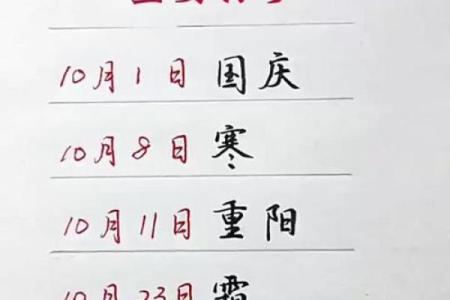 10月1日 国庆
10月8日 寒
10月11日 重阳
10月23日 霜